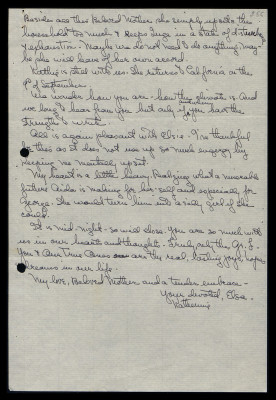 Besides all this Beloved Mother she simply upsets the
household too much & keeps Inez in a state of
exhaustion. Maybe we do not need to do anything may-
be she will leave of her own accord.
Kathie is still with us. She returns to California in the
1st of September.
We wonder how you are - how the climate is. And
we long to hear from you but only if you have the
strength to write.
All is again pleasant with Elsa. I'm thankful
for this as it does not use up so much energy by
keeping me mentally upset.
My heart is a little heavy realizing what a miserable
future Aida is making for her self and especially for
George. She would turn him into a silly girl if she
could.
It is mid-night - so will close. You are so much with
us in our hearts and thoughts. Truly
You & Our True Ones are the real, lasting joys, hope
& dreams in our life.
My love, Beloved Mother and a tender embrace -
Your devoted, Elsa.
Katherine